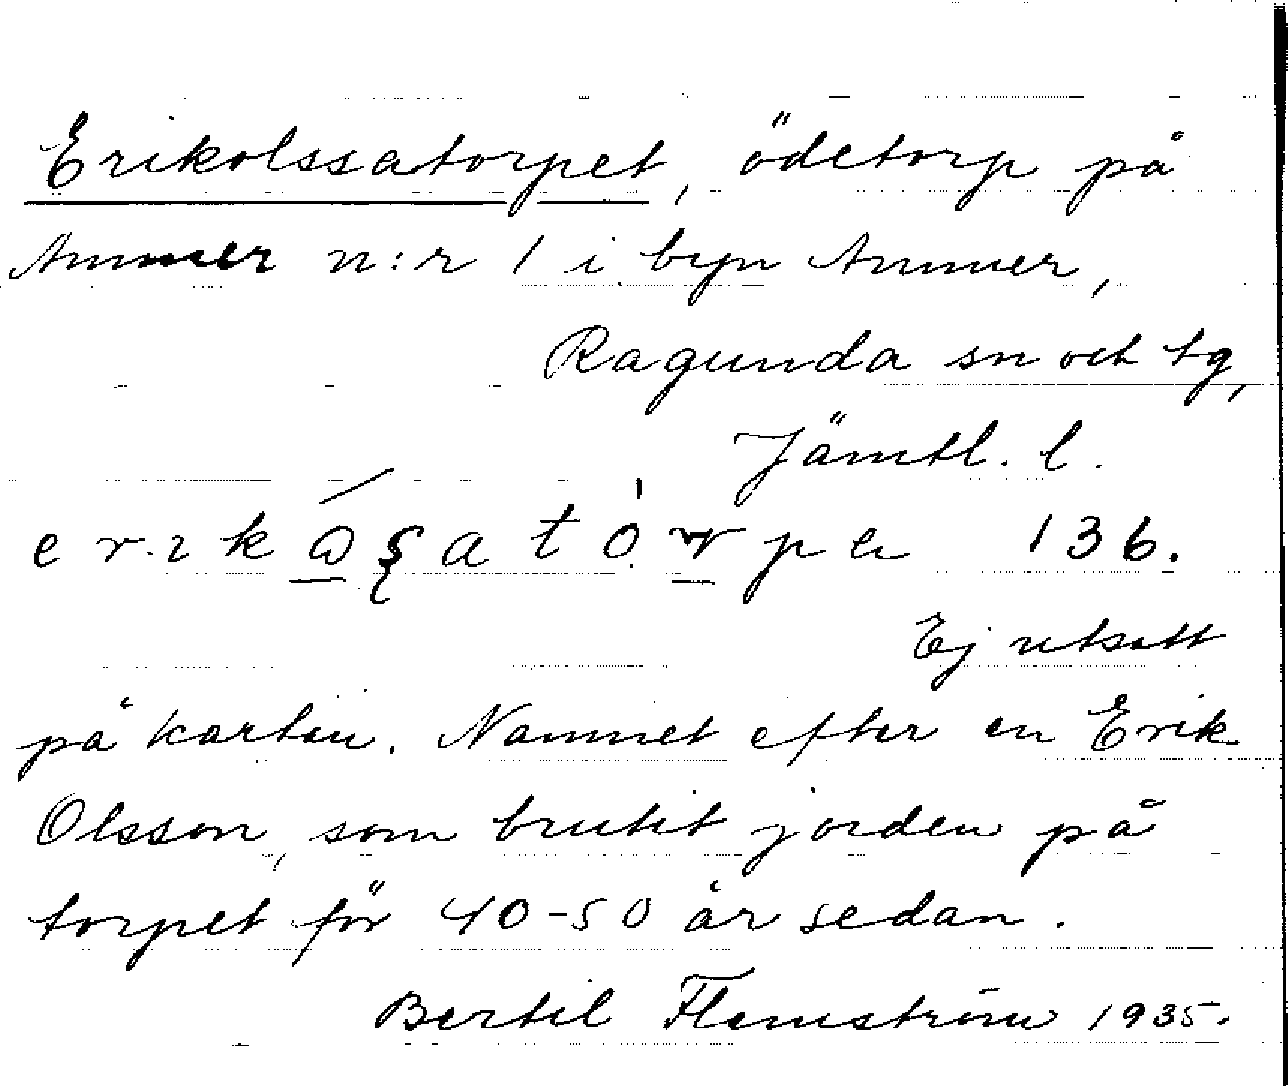 Erikolssatorpet, ödetorp på
Ammer n:r 1 i byn Ammer,
Ragunda sn och tg,
Jämtl. l.
136.
Ej utsatt
på kartan. Namnet efter en Erik
Olsson, som brutit jorden på
torpet för 40-50 år sedan.
Bertil Flemström 1935.